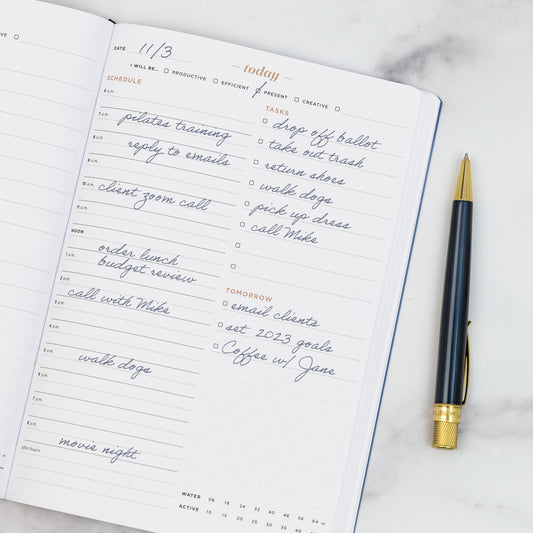 today
DATE 11/3
I WILL BE... PRODUCTIVE EFFICIENT PRESENT CREATIVE
SCHEDULE
6 a.m.
7 a.m. pilates training
8 a.m. reply to emails
9 a.m.
10 a.m. client zoom call
11 a.m.
NOON order lunch
1 p.m. budget review
2 p.m.
3 p.m. call with Mike
4 p.m.
5 p.m.
6 p.m. walk dogs
7 p.m.
8 p.m.
after hours movie night
TASKS
drop off ballot
take out trash
return shoes
walk dogs
pick up dress
call Mike
TOMORROW
email clients
set 2023 goals
Coffee w/ Jane
WATER 08 16 24 32 40 48 56 64 oz
ACTIVE 10 15 20 25 30 35 40